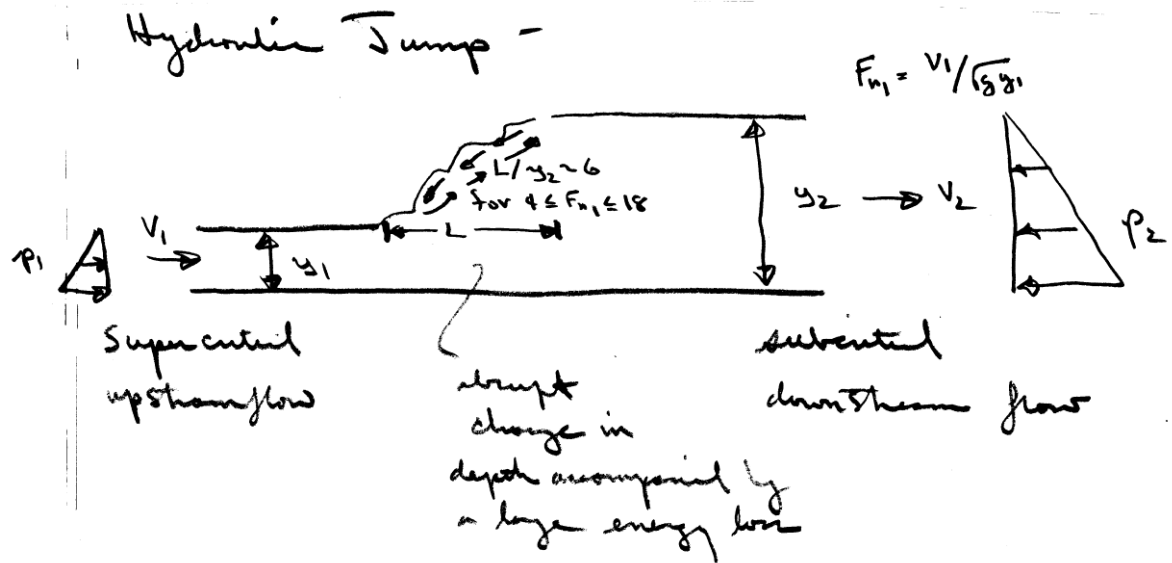 Hydraulic Jump -
Fn₁ = V₁/√gy₁
L/y₂ ~ 6
for 4 ≤ Fn₁ ≤ 18
L
y₂
V₂
p₂
p₁
V₁
y₁
Supercritical
upstream flow
abrupt
change in
depth accompanied by
a large energy loss
subcritical
downstream flow